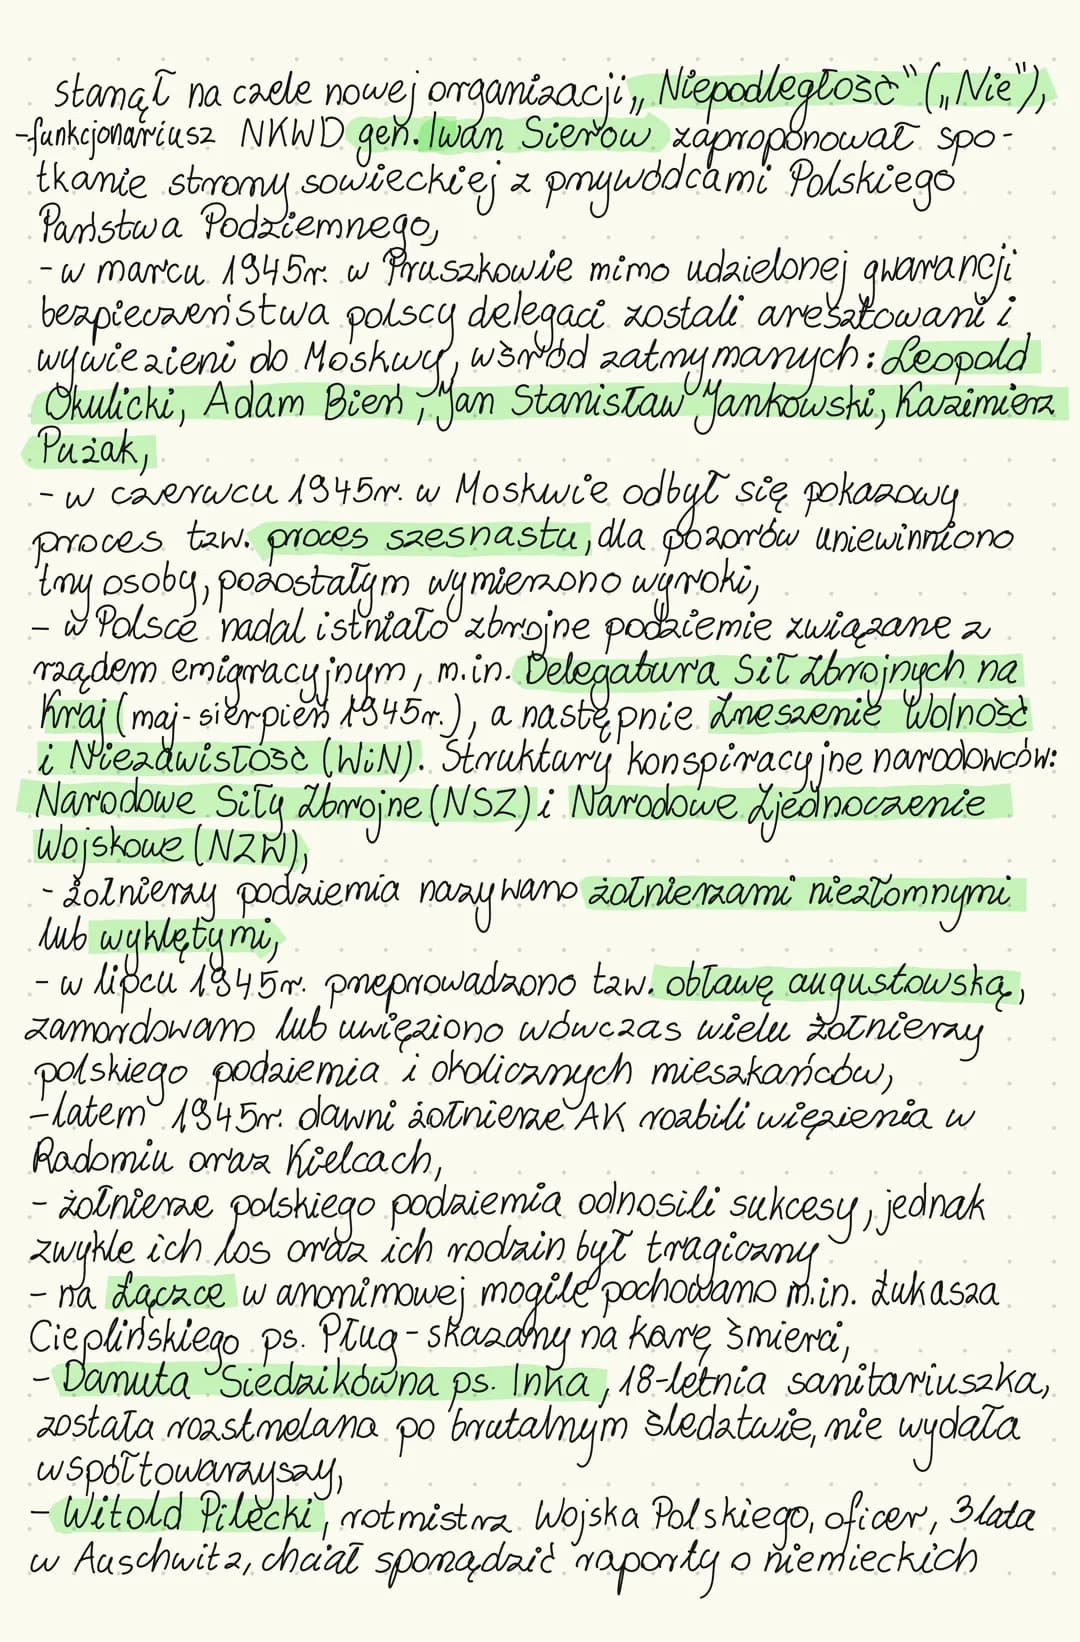 stanął na czele nowej organizacji „Niepodległość" („Nie"),
-funkcjonariusz NKWD gen. Iwan Sierow zaproponował spo-
tkanie strony sowieckiej z przywódcami Polskiego
Państwa Podziemnego,
- w marcu 1945r. w Pruszkowie mimo udzielonej gwarancji
bezpieczeństwa polscy delegaci zostali aresztowani i
wywiezieni do Moskwy, wśród zatrzymanych: Leopold
Okulicki, Adam Bień, Jan Stanisław Jankowski, Kazimierz
Pużak,
- w czerwcu 1945r. w Moskwie odbył się pokazowy
proces tzw. proces szesnastu, dla pozorów uniewinniono
trzy osoby, pozostałym wymierzono wyroki,
- w Polsce nadal istniało zbrojne podziemie związane z
rządem emigracyjnym, m.in. Delegatura Sił Zbrojnych na
Kraj (maj-sierpień 1945r.), a następnie Zrzeszenie Wolność
i Niezawisłość (WiN). Struktury konspiracyjne narodowców:
Narodowe Siły Zbrojne (NSZ) i Narodowe Zjednoczenie
Wojskowe (NZW),
- żołnierzy podziemia nazywano żołnierzami niezłomnymi
lub wyklętymi,
- w lipcu 1945r. przeprowadzono tzw. obławę augustowską,
zamordowano lub uwięziono wówczas wielu żołnierzy
polskiego podziemia i okolicznych mieszkańców,
-latem 1945r. dawni żołnierze AK rozbili więzienia w
Radomiu oraz Kielcach,
- żołnierze polskiego podziemia odnosili sukcesy, jednak
zwykle ich los oraz ich rodzin był tragiczny
- na Łączce w anonimowej mogile pochowano m.in. Łukasza
Cieplińskiego ps. Pług - skazany na karę śmierci,
- Danuta Siedzikówna ps. Inka, 18-letnia sanitariuszka,
została rozstrzelana po brutalnym śledztwie, nie wydała
współtowarzyszy,
- Witold Pilecki, rotmistrz Wojska Polskiego, oficer, 3 lata
w Auschwitz, chciał sporządzić raporty o niemieckich